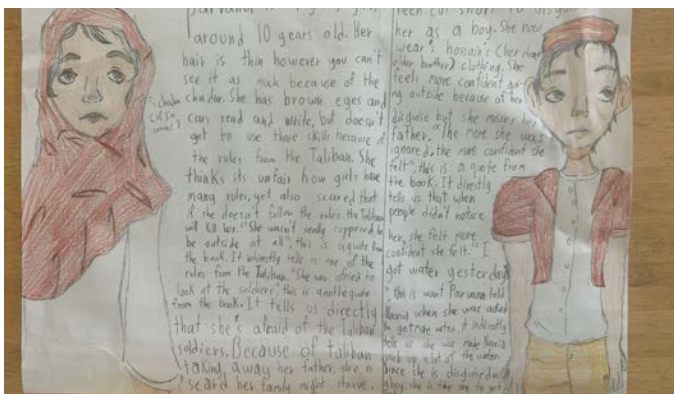 around 10 years old. Her
hair is thin however you can't
see it as much because of the
chadar. She has brown eyes and
can read and write, but doesn't
get to use those skills because of
the rules from the Taliban. She
thinks its unfair how girls have
many rules, yet also scared that
if she doesn't follow the rules the Taliban
will kill her. "She wasn't really supposed to
be outside at all", this is a quote from
the book. It indirectly tells is one of the
rules from the Taliban. "She was afried to
look at the soldiers" this is another quote
from the book. It tells us directly
that she's afraid of the Taliban
soldiers. Because of taliban
taking away her father, she is
scared her family might starve.
her as a boy. She now
wear's hosain's (her
older brother) clothing. She
feels more confident go-
ng outside because of her
disguise but she misses her
father. "The more she was
ignored, the more confident she
felt", this is a quote from
the book. It directly
tells us that when
people didn't notice
her, she felt more
confident she felt. "I
got water yesterday"
this is want Parvana told
Nooria when she was asked
to get more water, it indirectly
tells us she was made Nooria
used up a lot of the water.
Since she is disguised
boy, she is the one to get